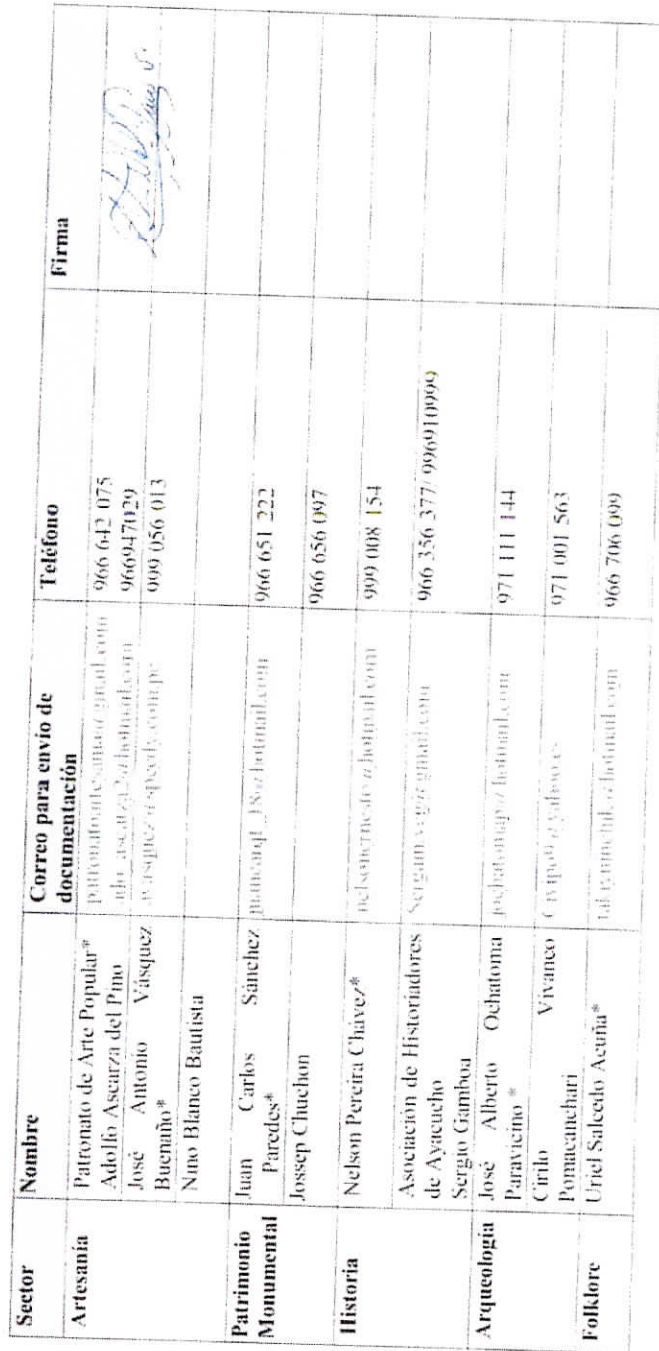 Sector Nombre Correo para envío de documentación Teléfono Firma
Artesanía
Patronato de Arte Popular* 966 642 075
Adolfo Ascarza del Pino 966947029
José Antonio Vásquez Buenaño* 999 056 013
Nino Blanco Bautista
Patrimonio Monumental
Juan Carlos Sánchez Paredes* 966 651 222
Jossep Chuchon 966 656 097
Historia
Nelson Pereira Chávez* 999 008 154
Asociación de Historiadores
de Ayacucho
Sergio Gamboa 966 356 377/ 996910999
Arqueología
José Alberto Ochatoma Paravicino * 971 111 144
Cirilo Vivanco Pomacanchari 971 001 563
Folklore
Uriel Salcedo Acuña* 966 706 099